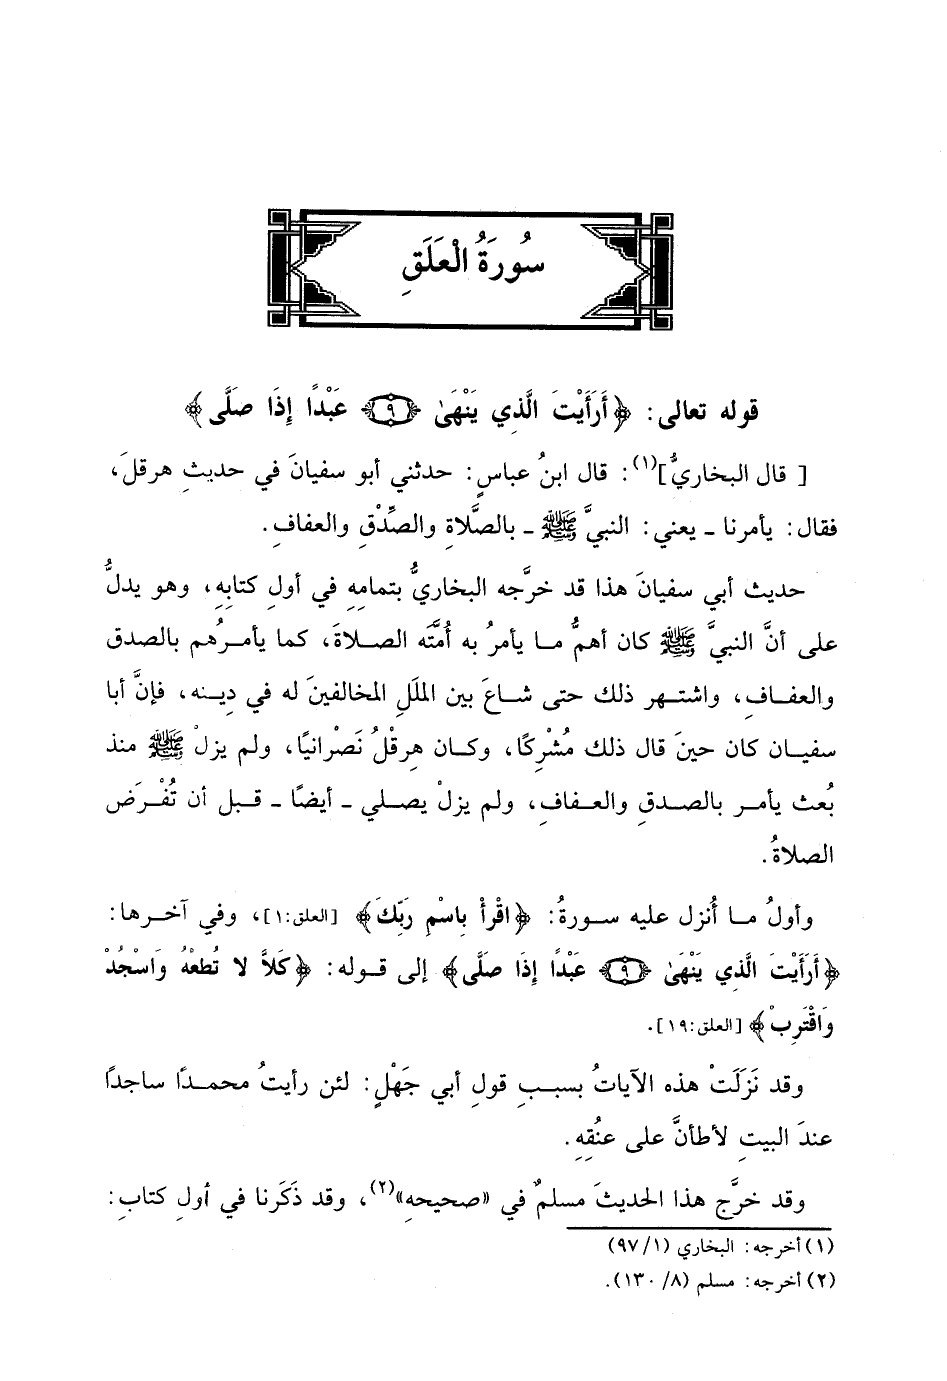 سُورَةُ الْعَلَقِ
قوله تعالى: ﴿أَرَأَيْتَ الَّذِي يَنْهَىٰ ﴿٩﴾ عَبْدًا إِذَا صَلَّى﴾
[ قال البخاريُّ](١): قال ابنُ عباسٍ: حدثني أبو سفيانَ في حديثِ هرقلَ،
فقال: يأمرنا ـ يعني: النبيَّ ﷺ ـ بالصَّلاةِ والصِّدْقِ والعفافِ.
حديث أبي سفيانَ هذا قد خرَّجه البخاريُّ بتمامِهِ في أولِ كتابِهِ، وهو يدلُّ
على أنَّ النبيَّ ﷺ كان أهمُّ ما يأمرُ به أُمَّتَه الصلاةَ، كما يأمرُهم بالصدق
والعفافِ، واشتهر ذلك حتى شاعَ بين المللِ المخالفينَ له في دِينه، فإنَّ أبا
سفيان كان حينَ قال ذلك مُشْرِكًا، وكان هرقْلُ نَصْرانيًا، ولم يزلْ ﷺ منذ
بُعث يأمر بالصدقِ والعفافِ، ولم يزلْ يصلي ـ أيضًا ـ قبل أن تُفْرَض
الصلاةُ.
وأولُ ما أُنزل عليه سورةُ: ﴿اقْرأْ بِاسْمِ رَبِّكَ﴾ [العلق:١]، وفي آخرها:
﴿أَرَأَيْتَ الَّذِي يَنْهَىٰ ﴿٩﴾ عَبْدًا إِذَا صَلَّى﴾ إلى قوله: ﴿كَلاَّ لا تُطِعْهُ وَاسْجُدْ
وَاقْتَرِبْ﴾ [العلق:١٩].
وقد نَزَلَتْ هذه الآياتُ بسببِ قولِ أبي جَهْلٍ: لئن رأيتُ محمدًا ساجدًا
عندَ البيتِ لأطأنَّ على عنُقِهِ.
وقد خرَّج هذا الحديثَ مسلمٌ في «صحيحهِ»(٢)، وقد ذَكَرنا في أولِ كتابِ:
(١) أخرجه: البخاري (١/ ٩٧)
(٢) أخرجه: مسلم (٨/ ١٣٠).